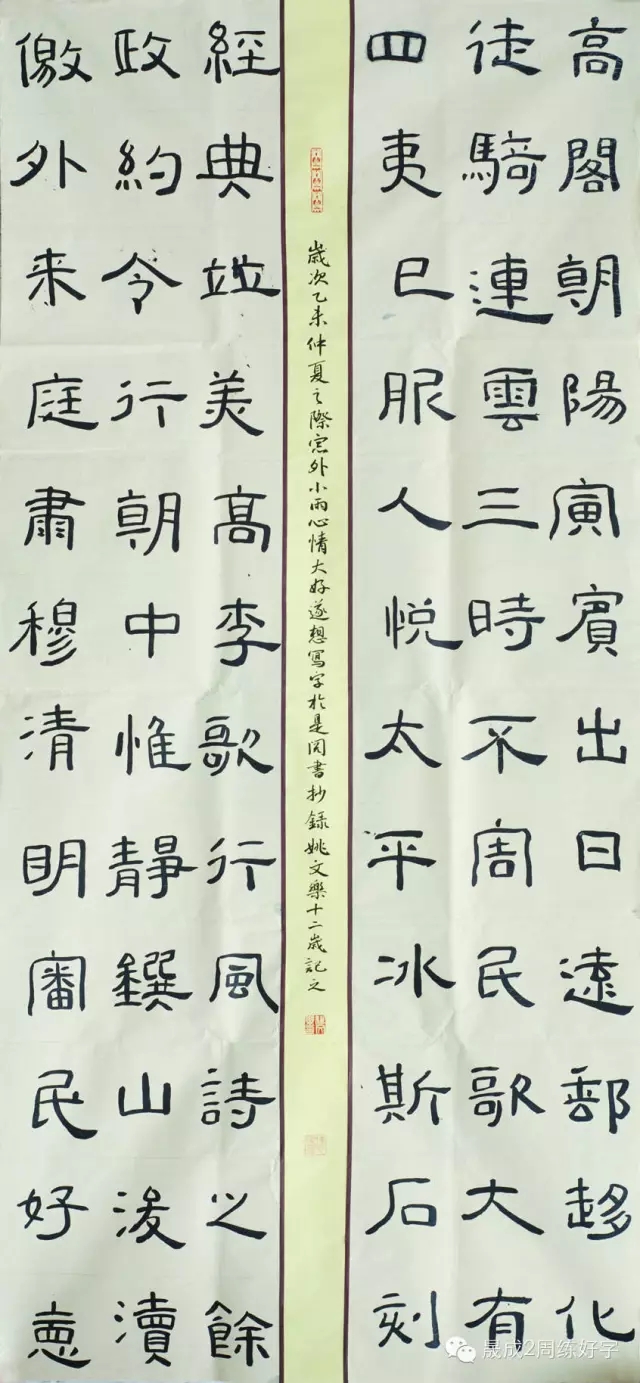 高閣朝陽寅賓出日遠鄙趍化
徒騎連雲三時不害民歌大有
四夷已服人悦太平冰斯石刻
歲次乙未仲夏之際窓外小雨心情大好遂想寫字於是閱書抄録姚文樂十二歲記之
經典竝美高李歌行風詩之餘
政約令行朝中惟靜鐉山浚瀆
徼外来庭肅穆清明審民好惡
晟成2周练好字